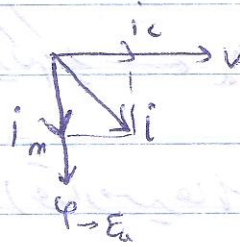 i c
V
i m
i
φ → Ea